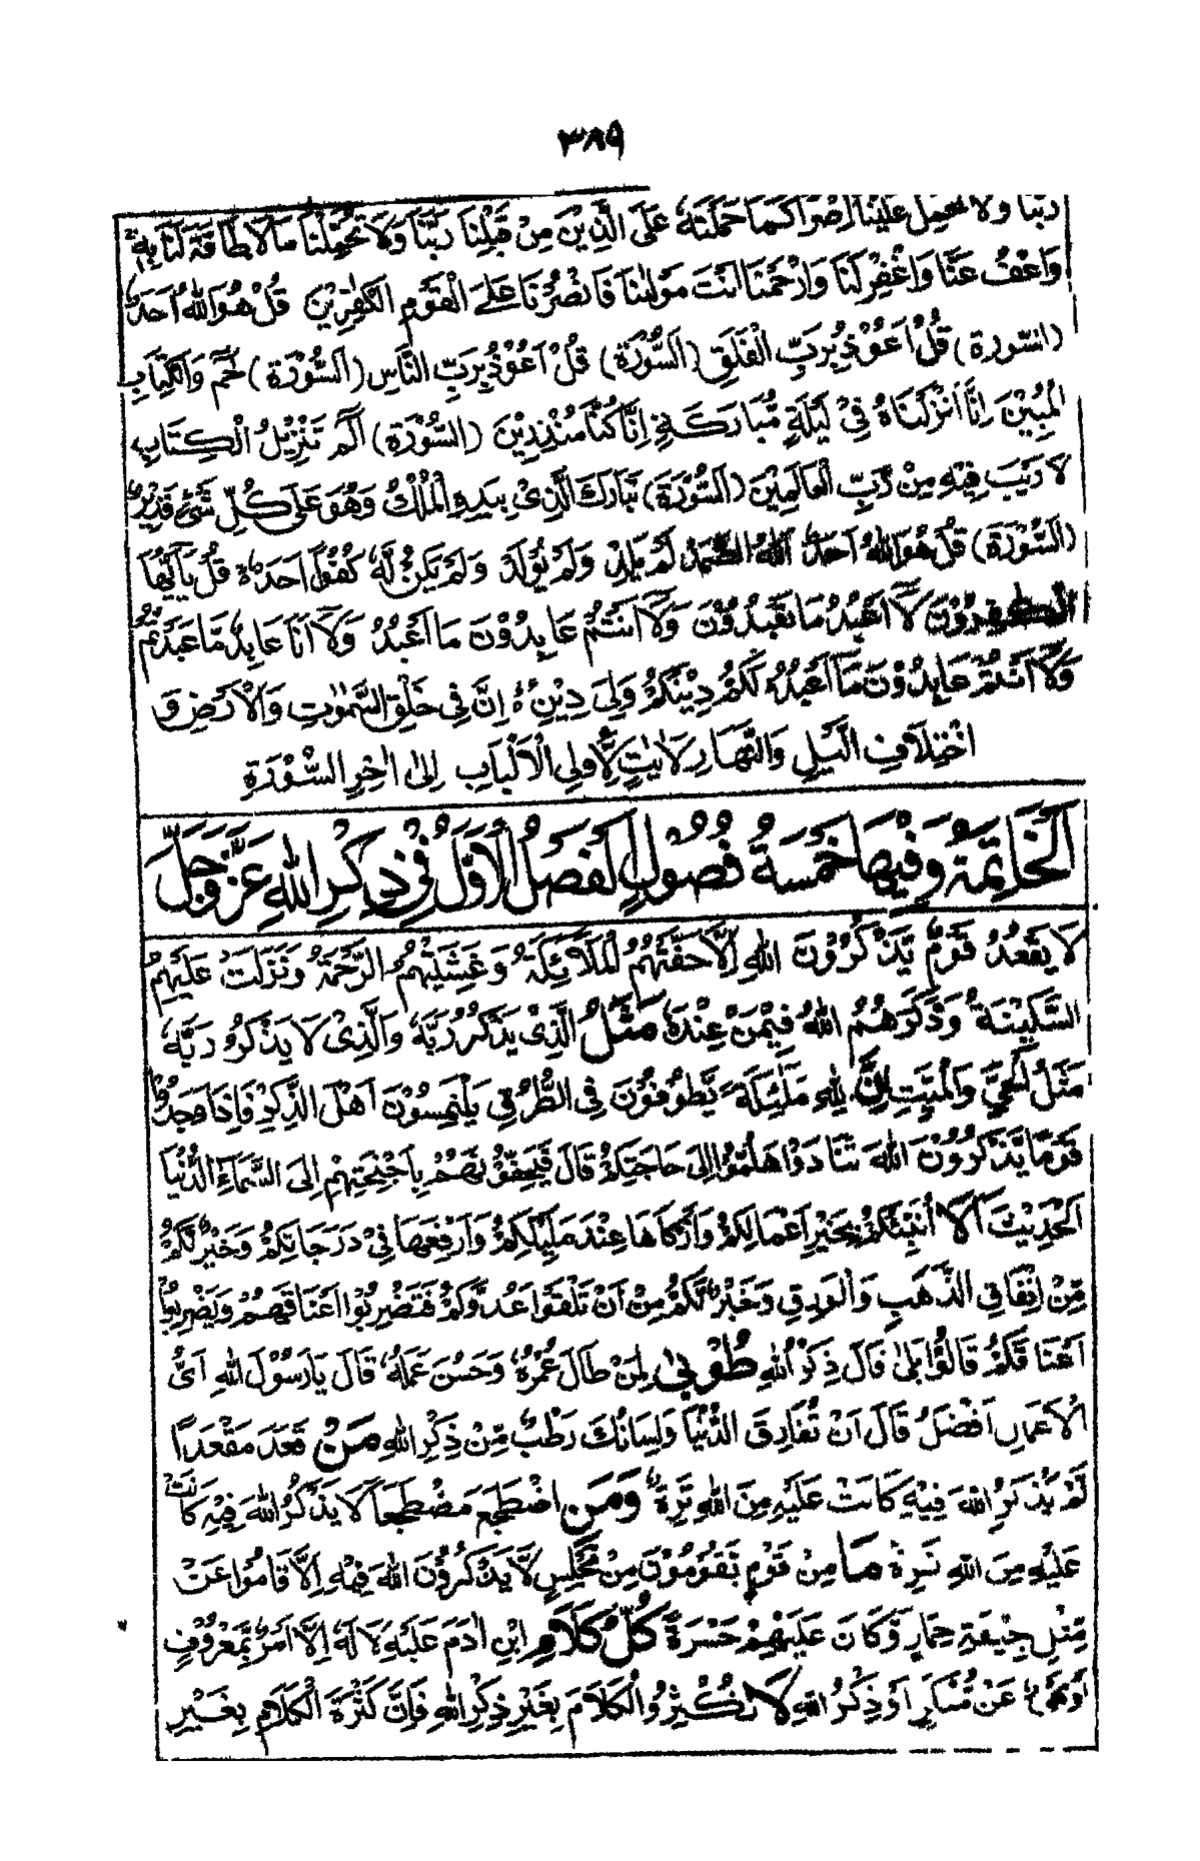 ٣٨٩
رَبَّنَا وَلَا تَحْمِلْ عَلَيْنَا اِصْرًا كَمَا حَمَلْتَهٗ عَلَى الَّذِيْنَ مِنْ قَبْلِنَا رَبَّنَا وَلَا تُحَمِّلْنَا مَا لَا طَاقَةَ لَنَا بِهٖ
وَاعْفُ عَنَّا وَاغْفِرْ لَنَا وَارْحَمْنَا اَنْتَ مَوْلٰىنَا فَانْصُرْنَا عَلَى الْقَوْمِ الْكٰفِرِيْنَ قُلْ هُوَ اللّٰهُ اَحَدٌ
(السورة) قُلْ اَعُوْذُ بِرَبِّ الْفَلَقِ (اَلسُّوْرَة) قُلْ اَعُوْذُ بِرَبِّ النَّاسِ (اَلسُّوْرَة) حٰمٓ وَالْكِتَابِ
الْمُبِيْنِ اِنَّا اَنْزَلْنَاهُ فِيْ لَيْلَةٍ مُّبَارَكَةٍ اِنَّا كُنَّا مُنْذِرِيْنَ (السُّوْرَة) الٓمٓ تَنْزِيْلُ الْكِتَابِ
لَا رَيْبَ فِيْهِ مِنْ رَّبِّ الْعَالَمِيْنَ (السُّوْرَة) تَبَارَكَ الَّذِيْ بِيَدِهِ الْمُلْكُ وَهُوَ عَلٰى كُلِّ شَيْءٍ قَدِيْرٌ
(اَلسُّوْرَة) قُلْ هُوَ اللّٰهُ اَحَدٌ اَللّٰهُ الصَّمَدُ لَمْ يَلِدْ وَلَمْ يُوْلَدْ وَلَمْ يَكُنْ لَّهٗ كُفُوًا اَحَدٌ قُلْ يَآ اَيُّهَا
الْكٰفِرُوْنَ لَآ اَعْبُدُ مَا تَعْبُدُوْنَ وَلَآ اَنْتُمْ عَابِدُوْنَ مَا اَعْبُدُ وَلَآ اَنَا عَابِدٌ مَّا عَبَدْتُّمْ
وَلَآ اَنْتُمْ عَابِدُوْنَ مَآ اَعْبُدُ لَكُمْ دِيْنُكُمْ وَلِيَ دِيْنِ اِنَّ فِيْ خَلْقِ السَّمٰوٰتِ وَالْاَرْضِ وَ
اخْتِلَافِ الَّيْلِ وَالنَّهَارِ لَاٰيٰتٍ لِّاُولِي الْاَلْبَابِ اِلٰى اٰخِرِ السُّوْرَةِ
اَلْخَاتِمَةُ وَفِيْهَا خَمْسَةُ فُصُوْلٍ اَلْفَصْلُ الْاَوَّلُ فِيْ ذِكْرِ اللّٰهِ عَزَّ وَجَلَّ
لَا يَقْعُدُ قَوْمٌ يَّذْكُرُوْنَ اللّٰهَ اِلَّا حَفَّتْهُمُ الْمَلَآئِكَةُ وَغَشِيَتْهُمُ الرَّحْمَةُ وَنَزَلَتْ عَلَيْهِمُ
السَّكِيْنَةُ وَذَكَرَهُمُ اللّٰهُ فِيْمَنْ عِنْدَهٗ مَثَلُ الَّذِيْ يَذْكُرُ رَبَّهٗ وَالَّذِيْ لَا يَذْكُرُ رَبَّهٗ
مَثَلُ الْحَيِّ وَالْمَيِّتِ اِنَّ لِلّٰهِ مَلٰئِكَةً يَّطُوْفُوْنَ فِي الطُّرُقِ يَلْتَمِسُوْنَ اَهْلَ الذِّكْرِ فَاِذَا وَجَدُوْا
قَوْمًا يَّذْكُرُوْنَ اللّٰهَ تَنَادَوْا هَلُمُّوْا اِلٰى حَاجَتِكُمْ قَالَ فَيَحُفُّوْنَهُمْ بِاَجْنِحَتِهِمْ اِلَى السَّمَآءِ الدُّنْيَا
الْحَدِيْثَ اَلَا اُنَبِّئُكُمْ بِخَيْرِ اَعْمَالِكُمْ وَاَزْكَاهَا عِنْدَ مَلِيْكِكُمْ وَاَرْفَعِهَا فِيْ دَرَجَاتِكُمْ وَخَيْرٌ لَّكُمْ
مِّنْ اِنْفَاقِ الذَّهَبِ وَالْوَرِقِ وَخَيْرٌ لَّكُمْ مِنْ اَنْ تَلْقَوْا عَدُوَّكُمْ فَتَضْرِبُوْا اَعْنَاقَهُمْ وَيَضْرِبُوْا
اَعْنَاقَكُمْ قَالُوْا بَلٰى قَالَ ذِكْرُ اللّٰهِ طُوْبٰى لِمَنْ طَالَ عُمُرُهٗ وَحَسُنَ عَمَلُهٗ قَالَ يَا رَسُوْلَ اللّٰهِ اَيُّ
الْاَعْمَالِ اَفْضَلُ قَالَ اَنْ تُفَارِقَ الدُّنْيَا وَلِسَانُكَ رَطْبٌ مِّنْ ذِكْرِ اللّٰهِ مَنْ قَعَدَ مَقْعَدًا
لَمْ يَذْكُرِ اللّٰهَ فِيْهِ كَانَتْ عَلَيْهِ مِنَ اللّٰهِ تِرَةٌ وَمَنِ اضْطَجَعَ مَضْطَجَعًا لَا يَذْكُرُ اللّٰهَ فِيْهِ كَانَتْ
عَلَيْهِ مِنَ اللّٰهِ تِرَةٌ مَا مِنْ قَوْمٍ يَقُوْمُوْنَ مِنْ مَّجْلِسٍ لَّا يَذْكُرُوْنَ اللّٰهَ فِيْهِ اِلَّا قَامُوْا عَنْ
مِثْلِ جِيْفَةِ حِمَارٍ وَّكَانَ عَلَيْهِمْ حَسْرَةً كُلُّ كَلَامِ ابْنِ اٰدَمَ عَلَيْهِ لَا لَهٗ اِلَّا اَمْرٌ بِمَعْرُوْفٍ
اَوْ نَهْيٌ عَنْ مُّنْكَرٍ اَوْ ذِكْرُ اللّٰهِ لَا تُكْثِرُوا الْكَلَامَ بِغَيْرِ ذِكْرِ اللّٰهِ فَاِنَّ كَثْرَةَ الْكَلَامِ بِغَيْرِ